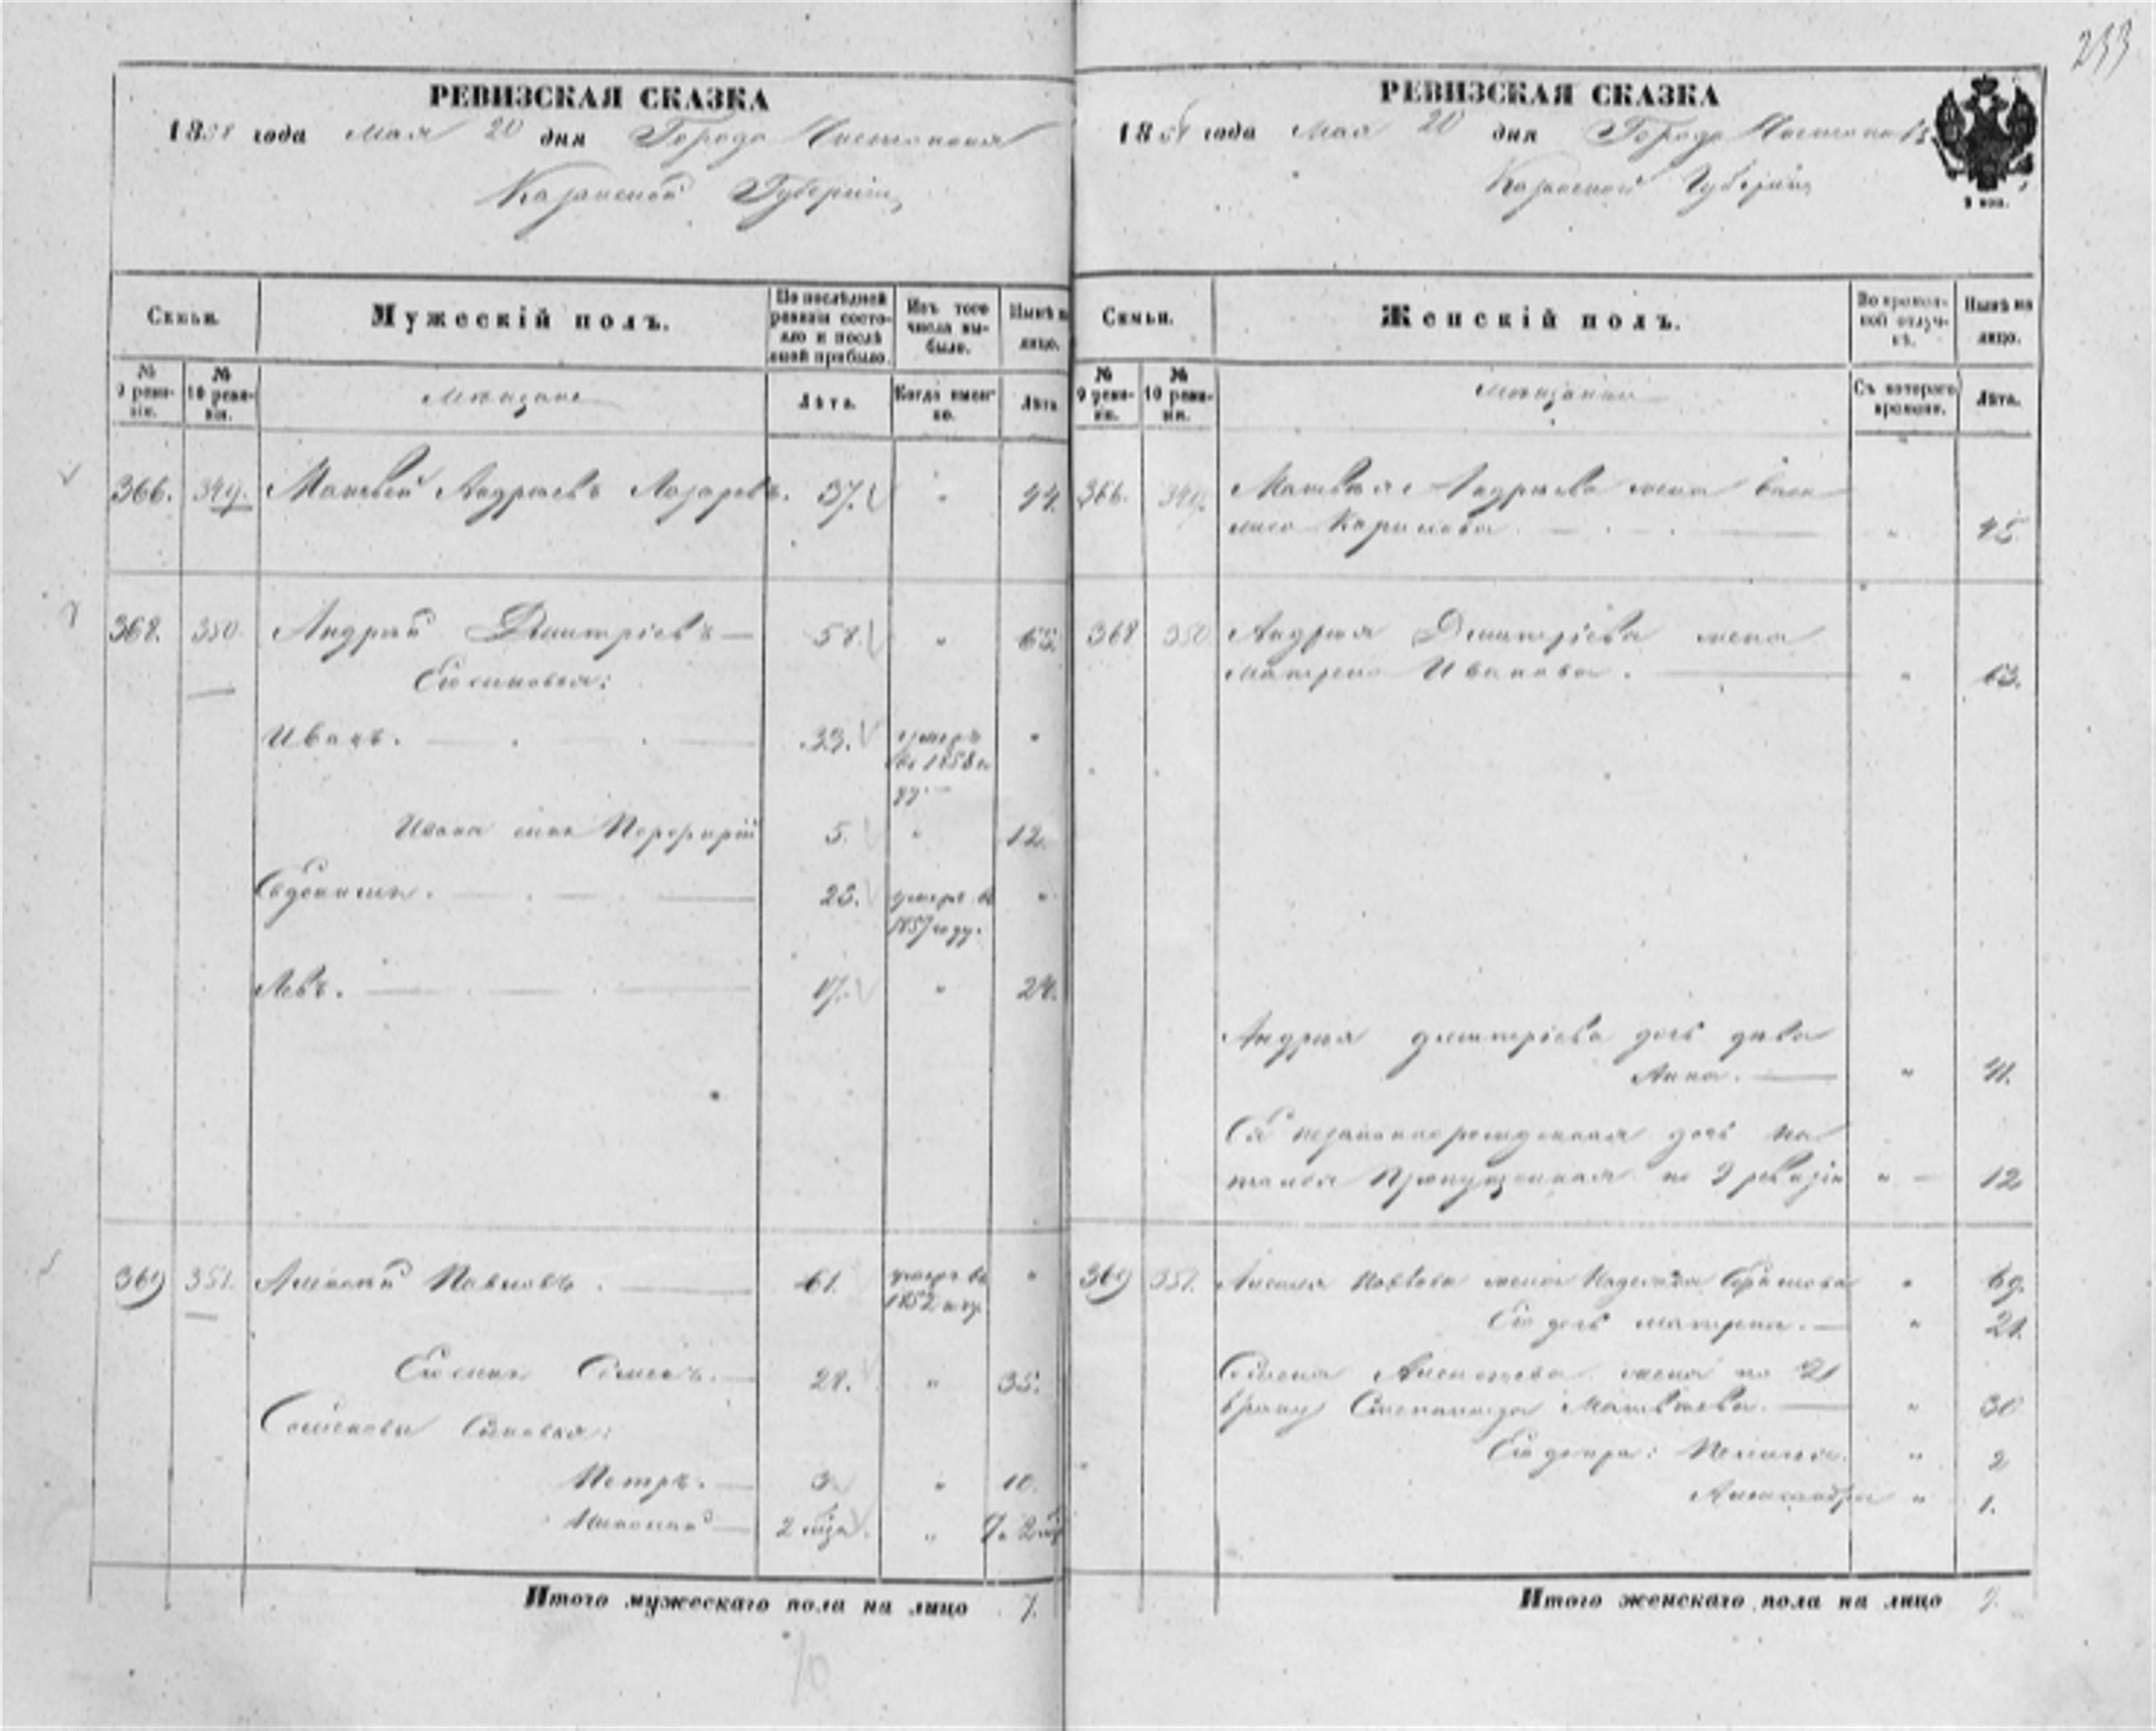 233
РЕВИЗСКАЯ СКАЗКА
1858 года Мая 20 дня Города Чистополя
Казанской Губерніи
Семьи.
Мужескій полъ.
По последней ревизіи состояло и после оной прибыло.
Изъ того числа выбыло.
Ныне на лицо.
№ 9 ревизіи.
№ 10 ревизіи.
Мещане
Лета.
Когда именно.
Лета.
366. 349. Матвей Андреевъ Лазаревъ. 37. " 44.
368. 350. Андрей Дмитріевъ — 58. " 65.
Его сыновья:
Иванъ. 33. умеръ "
въ 1858 го
ду.
Ивана сынъ Порфирій 5. " 12.
Евдокимъ. 23. умеръ въ "
1857 году.
Левъ. 17. " 24.
369 351. Алексей Павловъ. 61. умеръ въ "
1852 году
Его сынъ Семенъ. 28. " 35.
Семеновы сыновья:
Петръ. 3. " 10.
Николай 2 мца. " 7 л. 2 мц
Итого мужескаго пола на лицо 7.
10
РЕВИЗСКАЯ СКАЗКА
1858 года Мая 20 дня Города Чистополя
Казанской Губерніи
9 коп.
Семьи.
Женскій полъ.
Во временной отлучке.
Ныне на лицо.
№ 9 ревизіи.
№ 10 ревизіи.
Мещанки
Съ котораго времени.
Лета.
366. 349. Матвея Андреева жена Васи
лиса Карпова " 45
368 350 Андрея Дмитріева жена
Матрена Иванова. " 63.
Андрея Дмитріева дочь девка
Анна. " 41.
Ея незаконнорожденная дочь На
талья Пропущенная по 9 ревизіи " 12
369 351. Алексея Павлова жена Надежда Ефимова " 69.
Его дочь Матрена. " 21.
Семена Алексеева жена по 2
браку Степанида Матвеева. " 30
Его дочери: Пелагея. " 2
Александра " 1.
Итого женскаго пола на лицо 9.